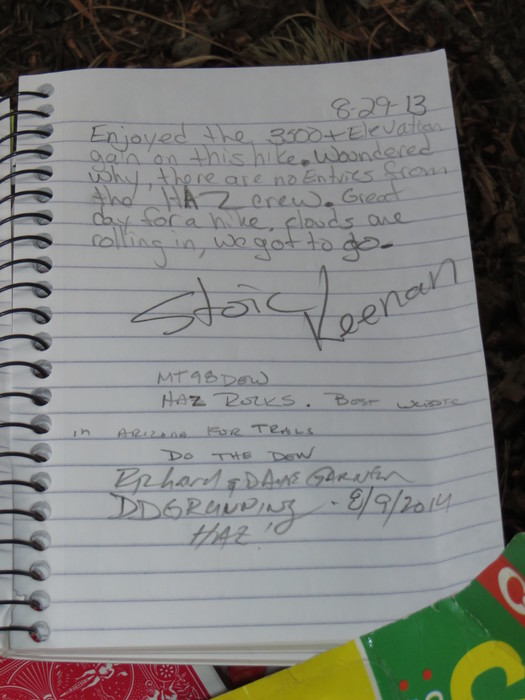 8-29-13
Enjoyed the 3500+ Elevation
gain on this hike. Woundered
why, there are no Entries from
the HAZ crew. Great
day for a hike, clouds are
rolling in, we got to go.
Stoic Keenan
MT98DOW
HAZ ROCKS. BEST WEBSITE
in ARIZONA FOR TRAILS
DO THE DEW
Richard & DAVE GARNER
DDGRUNNING - 8/9/2014
HAZ!